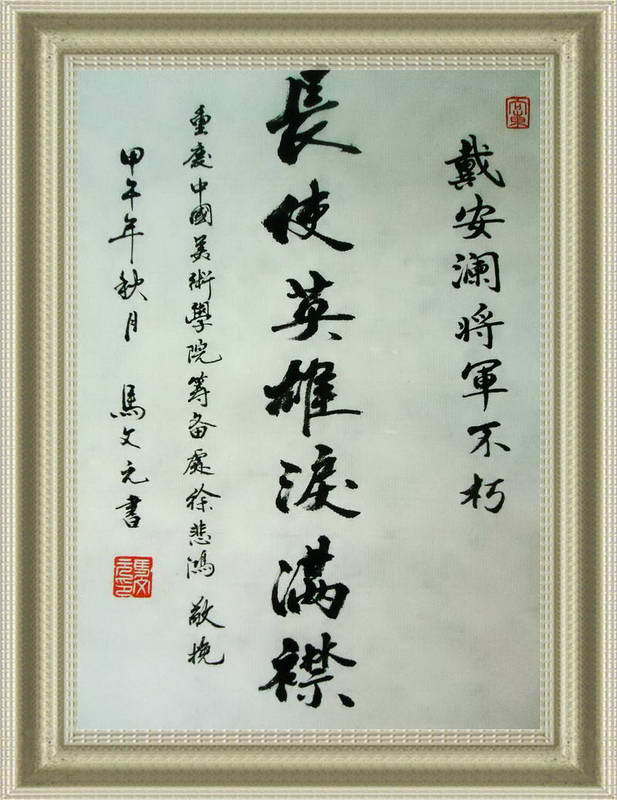 戴安澜将軍不朽
長使英雄淚滿襟
重慶中國美術學院筹备處徐悲鴻 敬挽
甲午年秋月 馬文元書
馬文元印